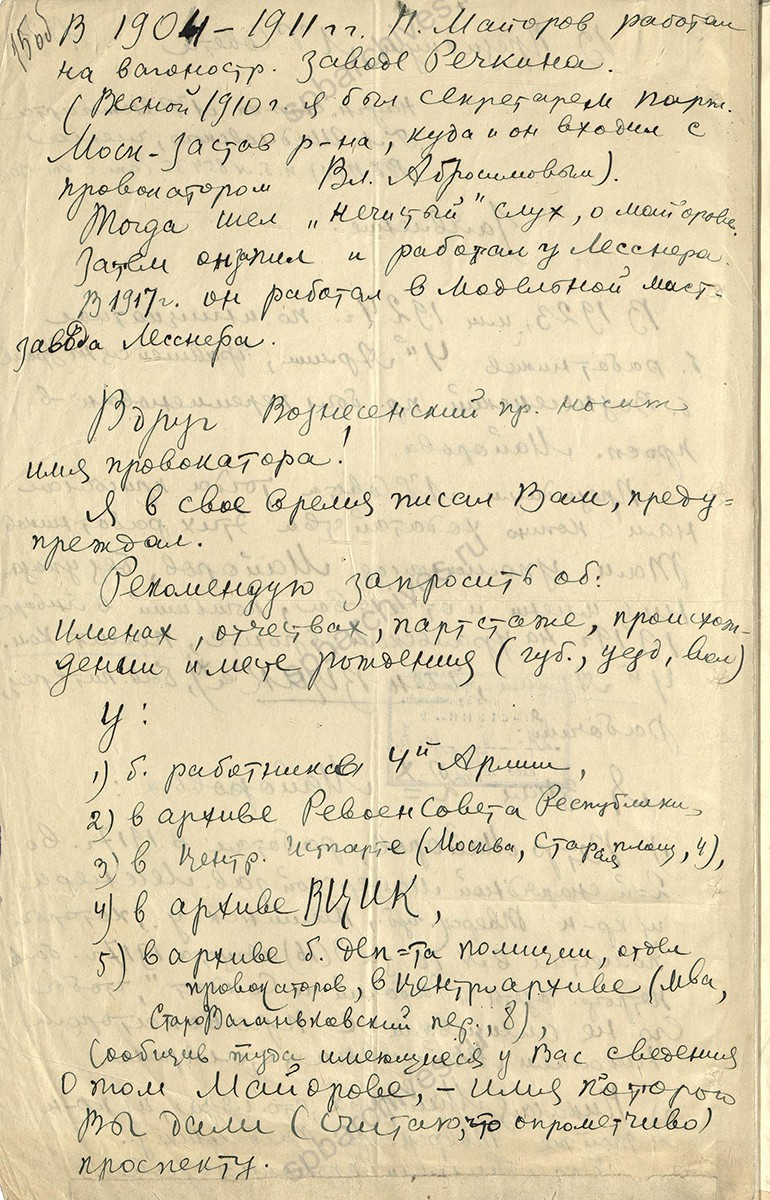 15об
В 1904-1911 гг. П. Майоров работал
на вагоностр. заводе Речкина.
(Весной 1910 г. я был секретарем парт.
Моск-Застав р-на, куда и он входил с
провокатором Вл. Абросимовым).
Тогда шел „нечистый" слух, о майорове.
Затем он жил и работал у Лесснера.
В 1917 г. он работал в Модельной маст-
завода Лесснера.
Вдруг Вознесенский пр. носит
имя провокатора!
Я в свое время писал Вам, преду=
преждал.
Рекомендую запросить об:
именах, отчествах, партстаже, происхож-
дении и месте рождения (губ., уезд, вол)
у:
1) б. работников 4й Армии,
2) в архиве РевоенСовета Республики
3) в Центр. Истпарте (Москва, Старая площ, 4),
4) в архиве ВЦИК,
5) в архиве б. деп=та полиции, отдел
провокаторов, в Центрархиве (Мва,
СтароВаганьковский пер., 8),
сообщив туда имеющиеся у Вас сведения
о том Майорове, - имя которого
Вы дали (считаю, что опрометчиво)
проспекту.